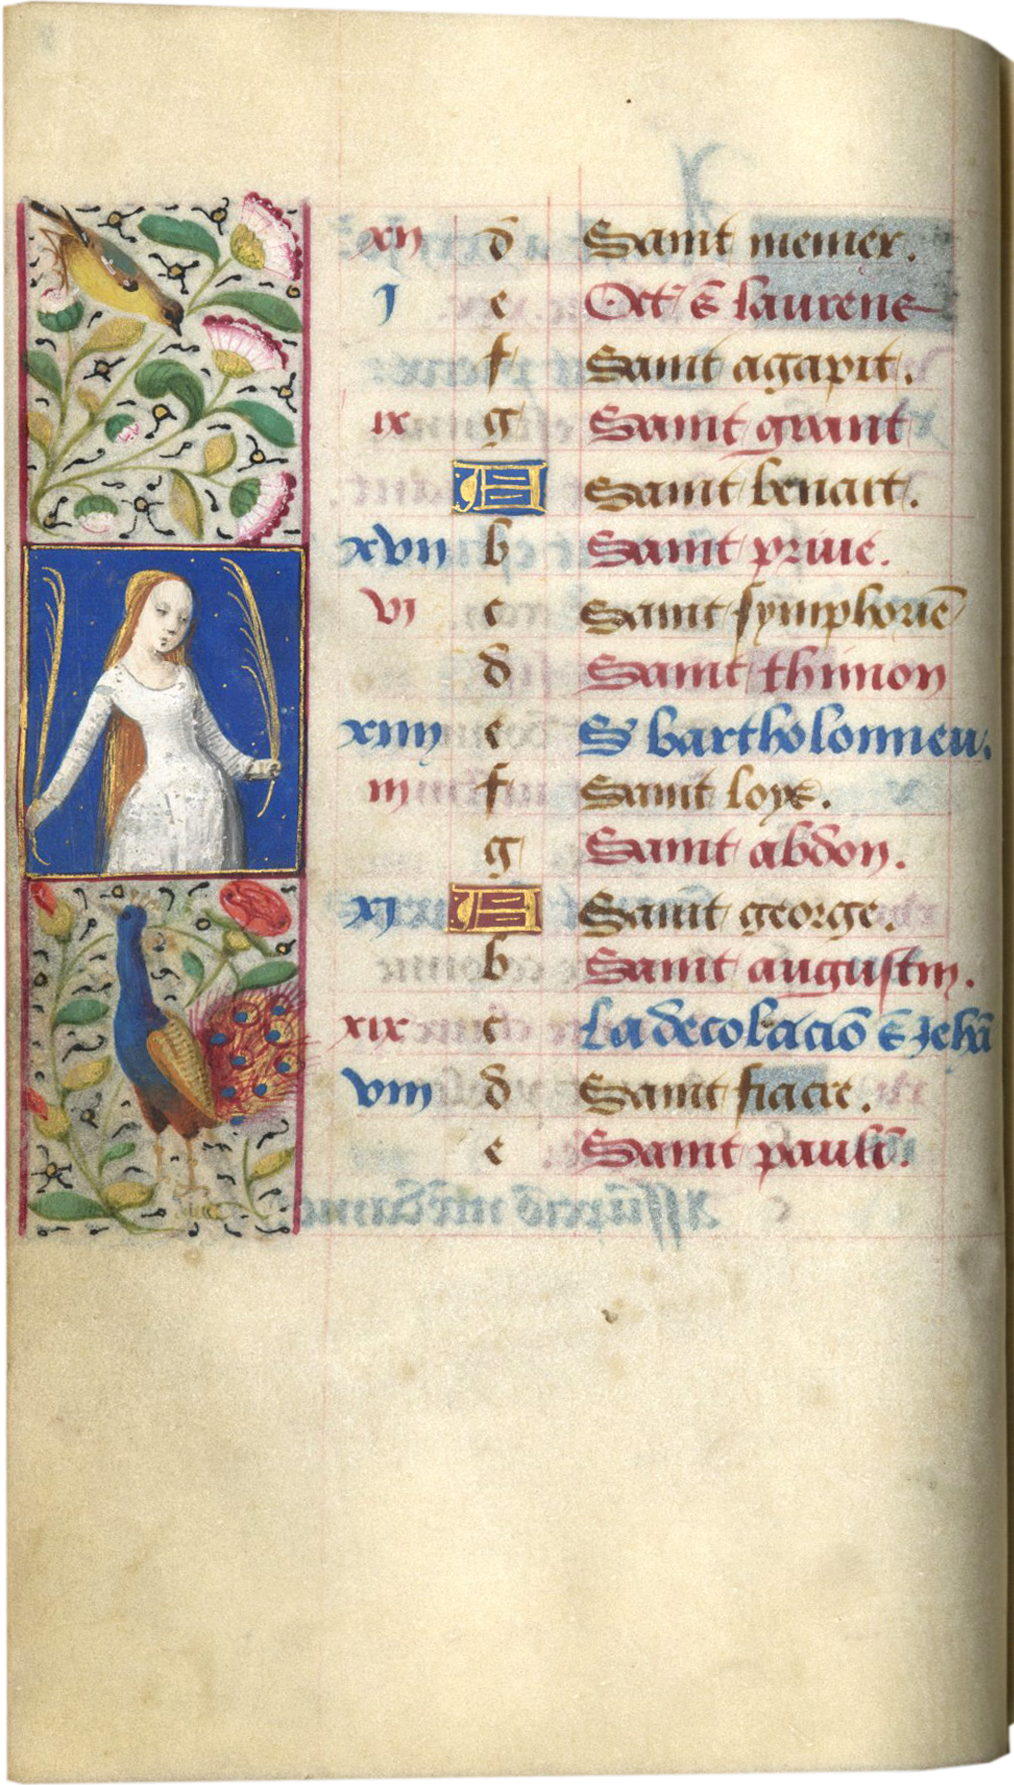 xii d Saint memer.
j e Oct' s̃ laurens
f Saint agapit.
ix g Saint grant
A Saint benart.
xvii b Saint priue.
vi c Saint symphoriẽ
d Saint thimon
xiiij e S' bartholomieu.
iii f Saint loys.
g Saint abdon.
xi A Saint george.
b Saint augustin.
xix c La decolacio᷃ s̃ Jehã
viii d Saint fiacre.
e Saint paulĩ.